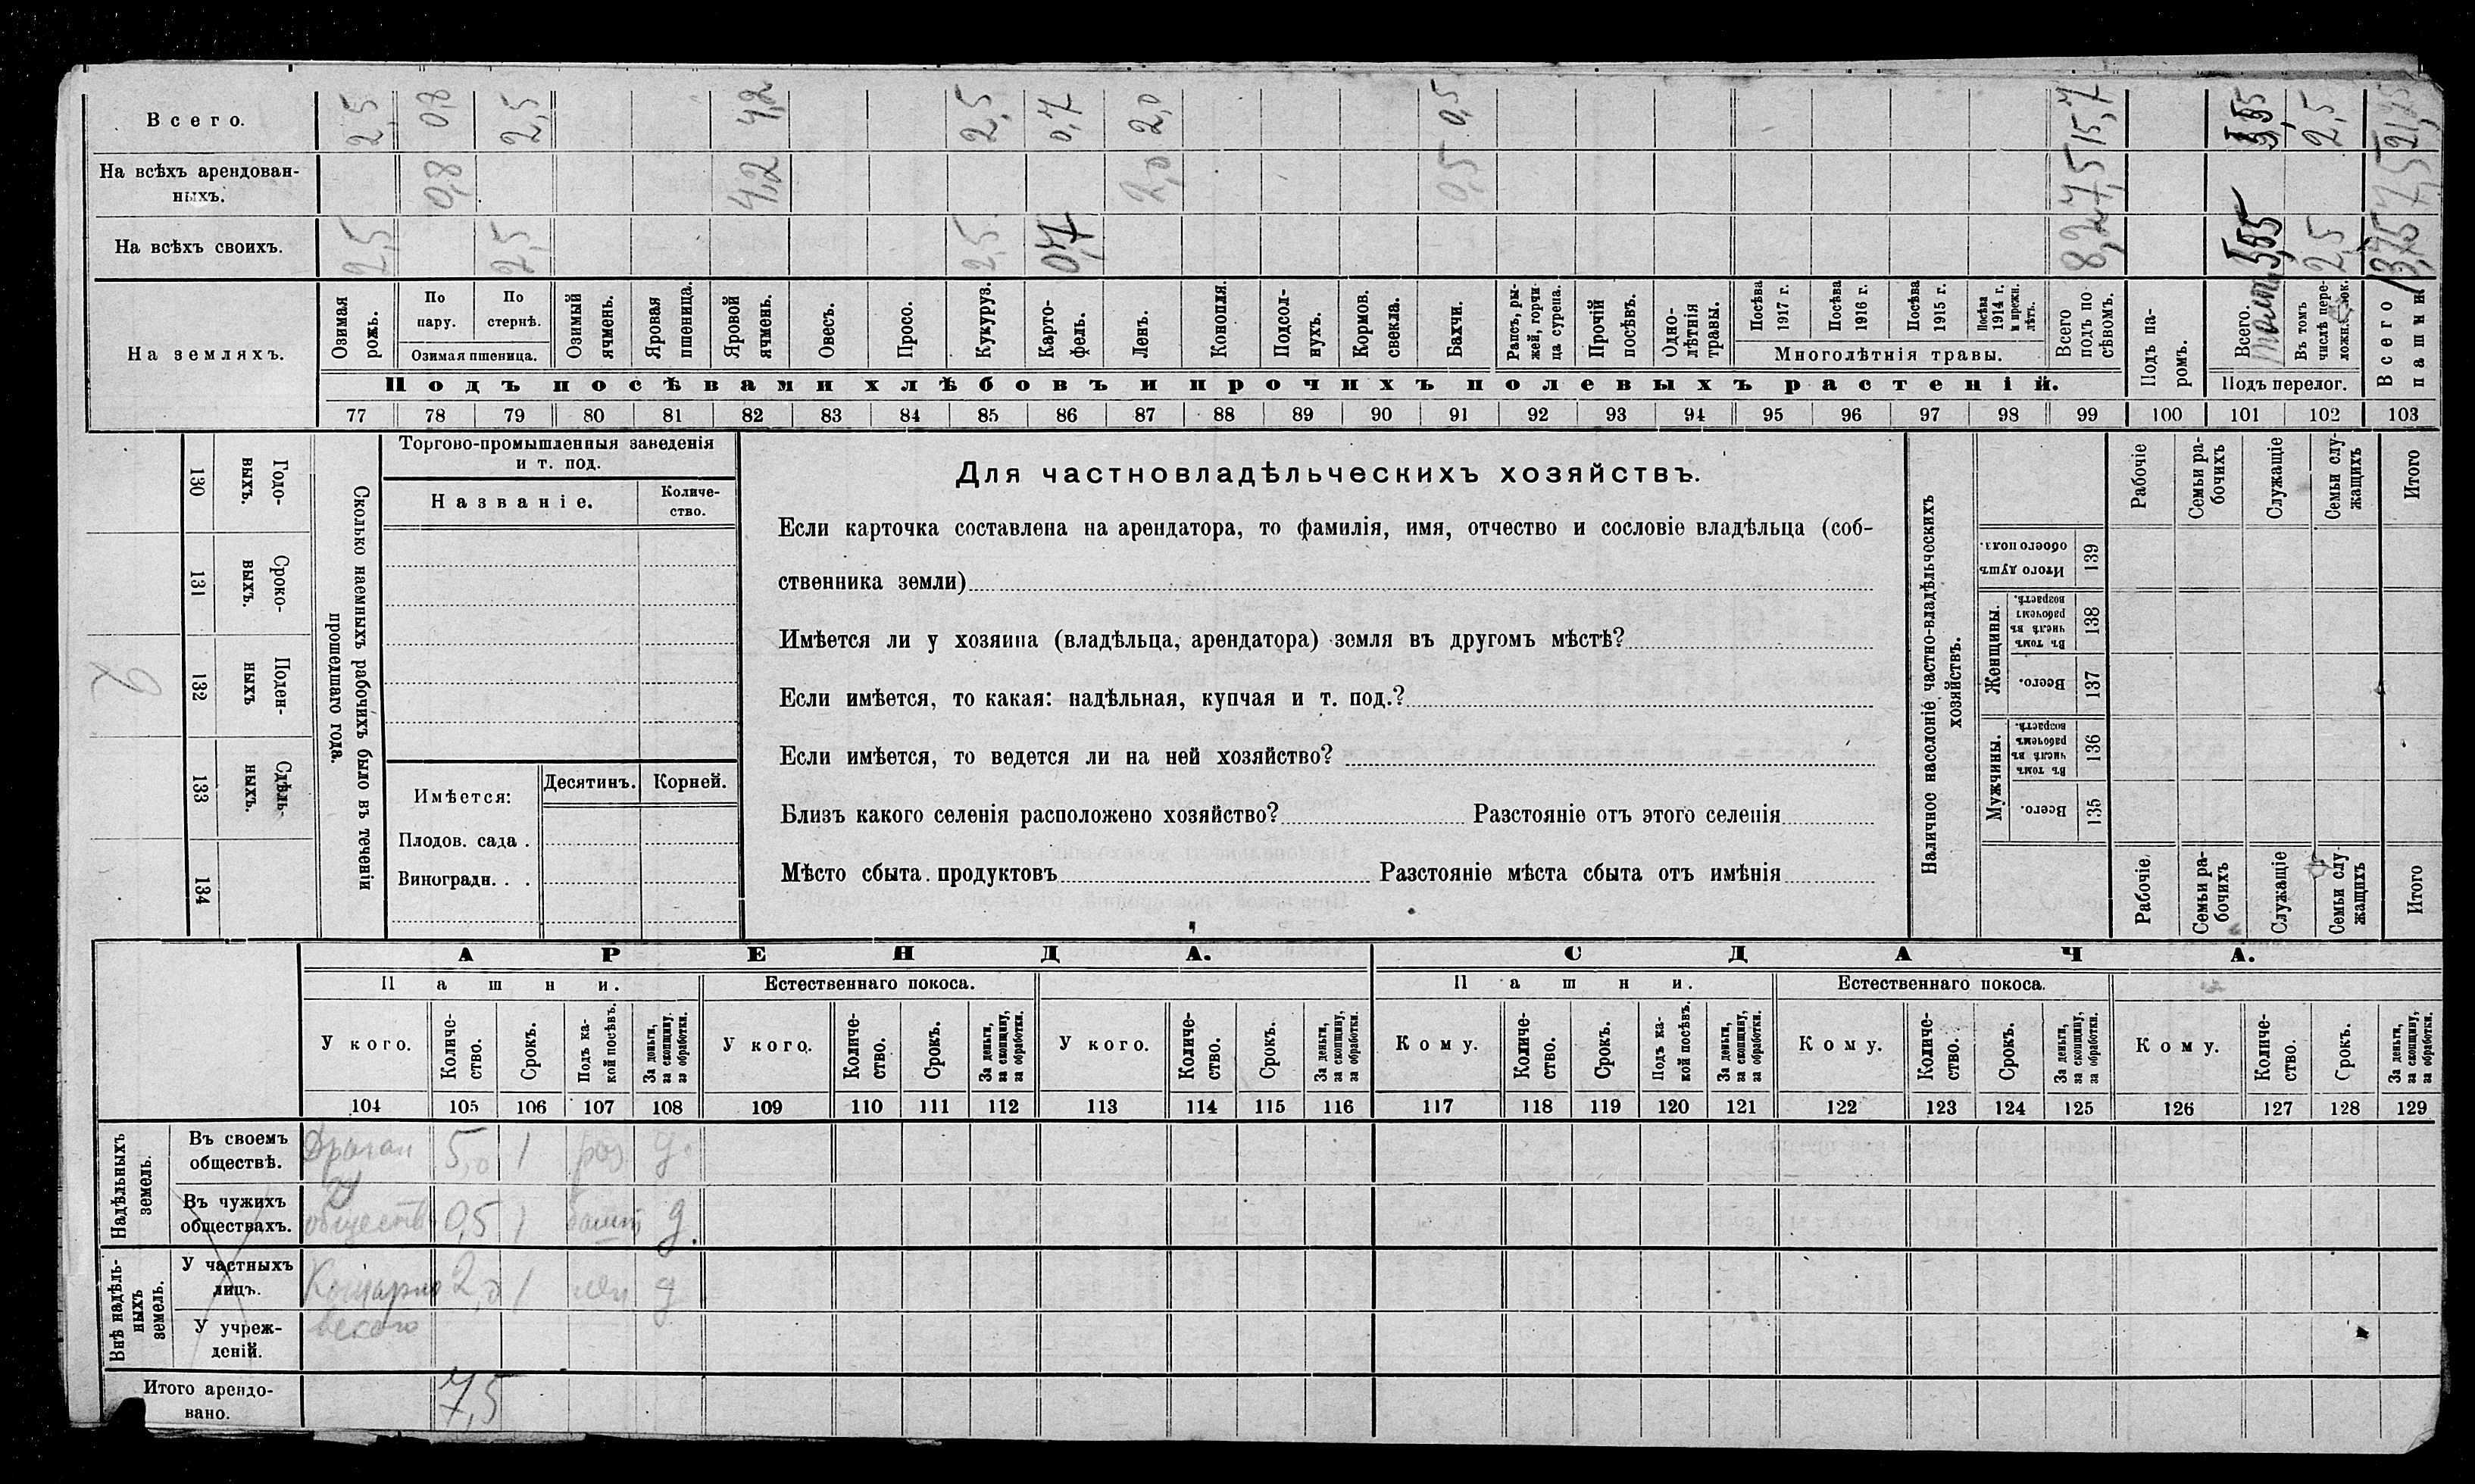 Всего. 2,5 0,8 2,5 4,2 2,5 0,7 2,0 0,5 15,7 5,55 2,5 21,25
На всѣхъ арендован-
ныхъ. 0,8 4,2 2,0 0,5 7,5 7,5
На всѣхъ своихъ. 2,5 2,5 2,5 0,7 8,2 5,55 2,5 13,75
На земляхъ.
Озимая рожь.
По пару.
По стернѣ.
Озимая пшеница.
Озимый ячмень.
Яровая пшеница.
Яровой ячмень.
Овесъ.
Просо.
Кукуруз.
Карто-
фель.
Ленъ.
Конопля.
Подсол-
нухъ.
Кормов. свекла.
Бахчи.
Рапсъ, ры-
жей, горчи-
ца сурепа.
Прочій посѣвъ.
Одно-
лѣтнія травы.
Посѣва 1917 г.
Посѣва 1916 г.
Посѣва 1915 г.
Посѣва 1914 г. и прежн. лѣтъ.
Многолѣтнія травы.
Всего подъ по
сѣвомъ.
Подъ па-
ромъ.
Всего.
Въ томъ числѣ пере-
Подъ перелог.
Всего пашни
Подъ посѣвами хлѣбовъ и прочихъ полевыхъ растеній.
77 78 79 80 81 82 83 84 85 86 87 88 89 90 91 92 93 94 95 96 97 98 99 100 101 102 103
130 Годо-
выхъ.
131 Сроко-
выхъ.
132 Поден-
ныхъ
2
133 Сдѣль-
ныхъ.
134
Сколько наемныхъ рабочихъ было въ теченіи
прошедшаго года.
Торгово-промышленныя заведенія
и т. под.
Названіе.
Количе-
ство.
Имѣется:
Десятинъ. Корней.
Плодов. сада .
Виноградн. . .
Для частновладѣльческихъ хозяйствъ.
Если карточка составлена на арендатора, то фамилія, имя, отчество и сословіе владѣльца (соб-
ственника земли)
Имѣется ли у хозяина (владѣльца, арендатора) земля въ другомъ мѣстѣ?
Если имѣется, то какая: надѣльная, купчая и т. под.?
Если имѣется, то ведется ли на ней хозяйство?
Близъ какого селенія расположено хозяйство? Разстояніе отъ этого селенія
Мѣсто сбыта продуктовъ Разстояніе мѣста сбыта отъ имѣнія
Наличное населеніе частно-владѣльческихъ
хозяйствъ.
Рабочіе
Семьи ра-
бочихъ
Служащіе
Семьи слу-
жащихъ
Итого
Итого душъ обоего пола. 139
Женщины.
Въ томъ числѣ въ рабочемъ возрастѣ. 138
Всего. 137
Мужчины.
Въ томъ числѣ въ рабочемъ возрастѣ. 136
Всего. 135
Рабочіе
Семьи ра-
бочихъ
Служащіе
Семьи слу-
жащихъ
Итого
АРЕНДА. СДАЧА.
Пашни. Естественнаго покоса. Пашни. Естественнаго покоса.
У кого.
Количе-
ство.
Срокъ.
Подъ ка-
кой посѣвъ.
За деньги, за скопщину, за обработки.
У кого.
Количе-
ство.
Срокъ.
За деньги, за скопщину, за обработки.
У кого.
Количе-
ство.
Срокъ.
За деньги, за скопщину, за обработки.
Кому.
Количе-
ство.
Срокъ.
Подъ ка-
кой посѣвъ.
За деньги, за скопщину, за обработки.
Кому.
Количе-
ство.
Срокъ.
За деньги, за скопщину, за обработки.
Кому.
Количе-
ство.
Срокъ.
За деньги, за скопщину, за обработки.
104 105 106 107 108 109 110 111 112 113 114 115 116 117 118 119 120 121 122 123 124 125 126 127 128 129
Надѣльныхъ земель.
Въ своемъ
обществѣ. 5,0 1 раз. д.
Въ чужихъ
обществахъ. обществ 0,5 1 башт д.
Внѣ надѣль-
ныхъ земель.
У частныхъ
лицъ. 2,0 1 лен д
У учреж-
деній.
Итого арендо-
вано. 7,5